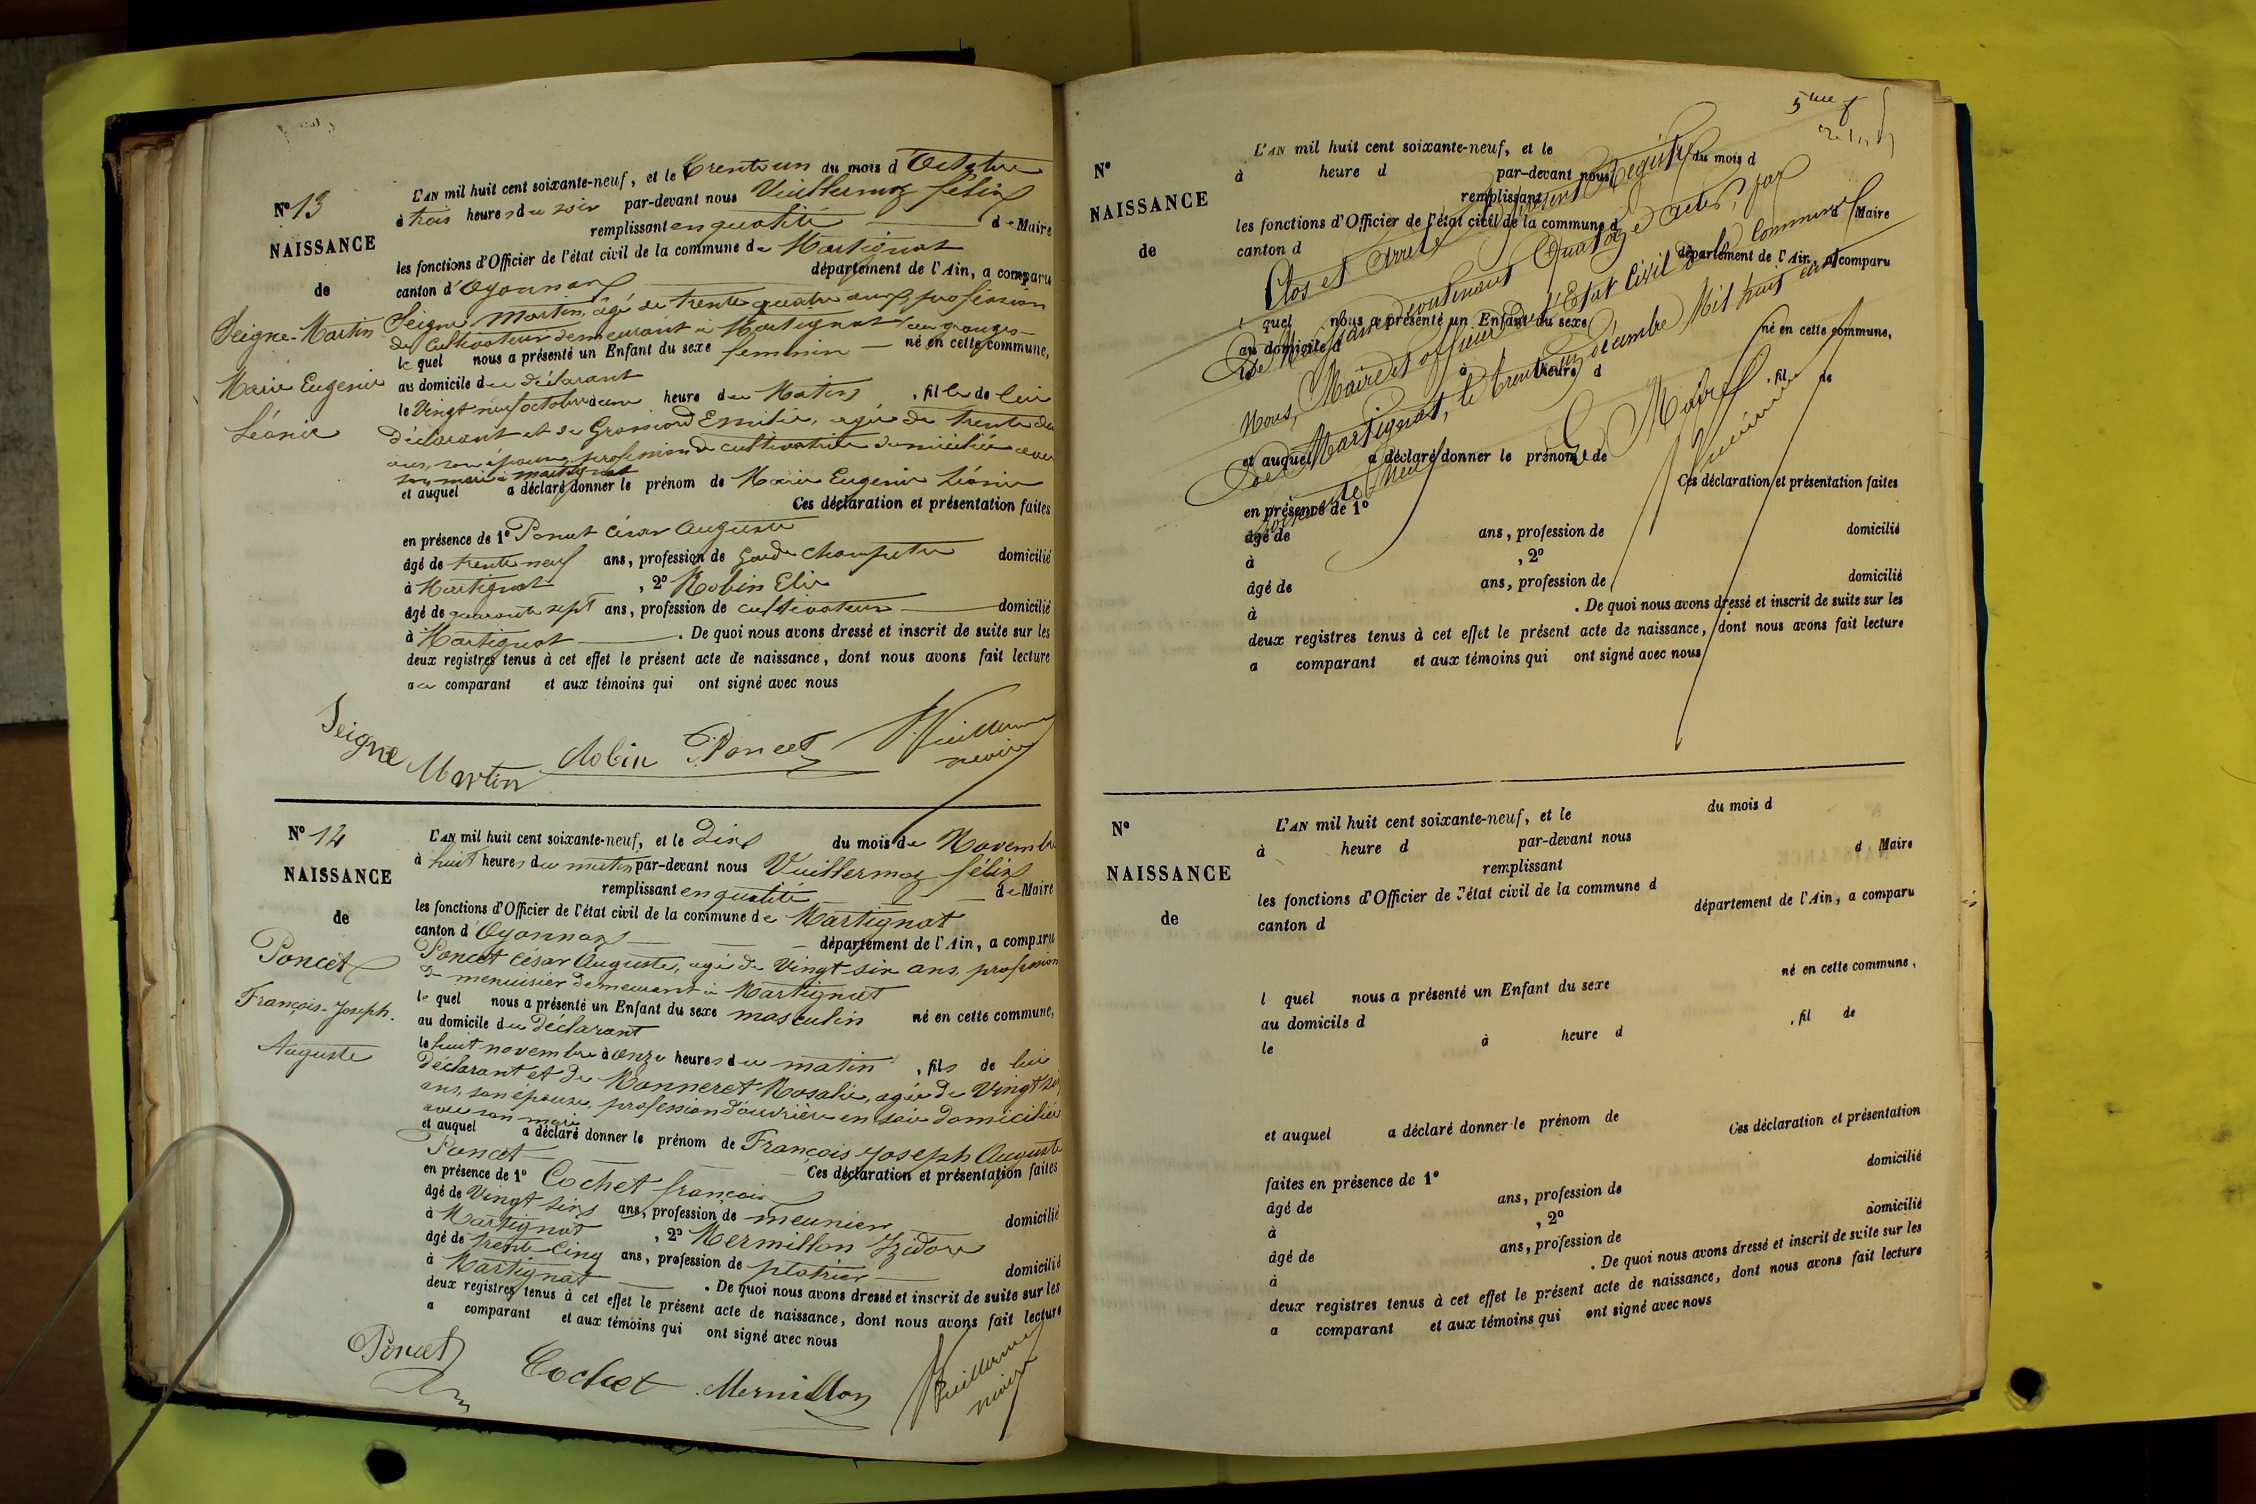 N° 13
NAISSANCE
de
Seigne-Martin
Marie Eugenie
Léonie
L'AN mil huit cent soixante-neuf, et le trente un du mois d'Octobre
à trois heures du soir par-devant nous Vuillermoz félix
remplissant en qualité de Maire
les fonctions d'Officier de l'état civil de la commune de Martignat
canton d'Oyonnax département de l'Ain, a comparu
Seigne Martin, âgé de trente quatre ans, profession
de cultivateur demeurant à Martignat
le quel nous a présenté un Enfant du sexe feminin né en cette commune,
au domicile du déclarant
le Vingt neuf octobre à une heure du Matin, fille de lui
déclarant et de Emilie, agée de trente
ans, son épouse, profession de cultivatrice domiciliée avec
son mari à Martignat
et auquel a déclaré donner le prénom de Marie Eugenie Léonie
Ces déclaration et présentation faites
en présence de 1° Poncet César Auguste
âgé de trente neuf ans, profession de Garde Champetre domicilié
à Martignat, 2° Robin Elie
âgé de quarante sept ans, profession de cultivateur domicilié
à Martignat. De quoi nous avons dressé et inscrit de suite sur les
deux registres tenus à cet effet le présent acte de naissance, dont nous avons fait lecture
au comparant et aux témoins qui ont signé avec nous
Seigne Martin Robin Poncet Vuillermoz
N° 14
NAISSANCE
de
Poncet
François-Joseph-
Auguste
L'AN mil huit cent soixante-neuf, et le Dix du mois de Novembre
à huit heures du matin par-devant nous Vuillermoz félix
remplissant en qualité de Maire
les fonctions d'Officier de l'état civil de la commune de Martignat
canton d'Oyonnax département de l'Ain, a comparu
Poncet César Auguste, agé de Vingt-six ans, profession
de menuisier demeurant à Martignat
le quel nous a présenté un Enfant du sexe masculin né en cette commune,
au domicile du déclarant
le huit novembre à onze heures du matin, fils de lui
déclarant et de Monneret Rosalie, agée de Vingt
ans, son épouse, profession d'ouvrière en soie domiciliée
avec son mari
et auquel a déclaré donner le prénom de François Joseph Auguste
Poncet Ces déclaration et présentation faites
en présence de 1° Cochet françois
âgé de Vingt six ans, profession de meunier domicilié
à Martignat, 2° Mermillon Izidore
âgé de trente-Cinq ans, profession de platrier domicilié
à Martignat. De quoi nous avons dressé et inscrit de suite sur les
deux registres tenus à cet effet le présent acte de naissance, dont nous avons fait lecture
a comparant et aux témoins qui ont signé avec nous
Poncet Cochet Mermillon Vuillermoz
5me
N°
NAISSANCE
de
L'AN mil huit cent soixante-neuf, et le du mois d
à heure d par-devant nous
remplissant d Maire
les fonctions d'Officier de l'état civil de la commune d
canton d département de l'Ain, a comparu
l quel nous a présenté un Enfant du sexe né en cette commune,
au domicile d
le à heure d , fil de
et auquel a déclaré donner le prénom de
Ces déclaration et présentation faites
en présence de 1°
âgé de ans, profession de domicilié
à , 2°
âgé de ans, profession de domicilié
à . De quoi nous avons dressé et inscrit de suite sur les
deux registres tenus à cet effet le présent acte de naissance, dont nous avons fait lecture
a comparant et aux témoins qui ont signé avec nous
Clos et arrêté le présent Registre
de Naissances contenant Quatorze actes, par
Nous, Maire et officier de l'Etat civil de la Commune
de Martignat, le trente un décembre Mil huit cent
soixante Neuf
Le Maire
N°
NAISSANCE
de
L'AN mil huit cent soixante-neuf, et le du mois d
à heure d par-devant nous
remplissant d Maire
les fonctions d'Officier de l'état civil de la commune d
canton d département de l'Ain, a comparu
l quel nous a présenté un Enfant du sexe né en cette commune,
au domicile d
le à heure d , fil de
et auquel a déclaré donner le prénom de
Ces déclaration et présentation
faites en présence de 1° domicilié
âgé de ans, profession de
à , 2° domicilié
âgé de ans, profession de
à . De quoi nous avons dressé et inscrit de suite sur les
deux registres tenus à cet effet le présent acte de naissance, dont nous avons fait lecture
a comparant et aux témoins qui ont signé avec nous